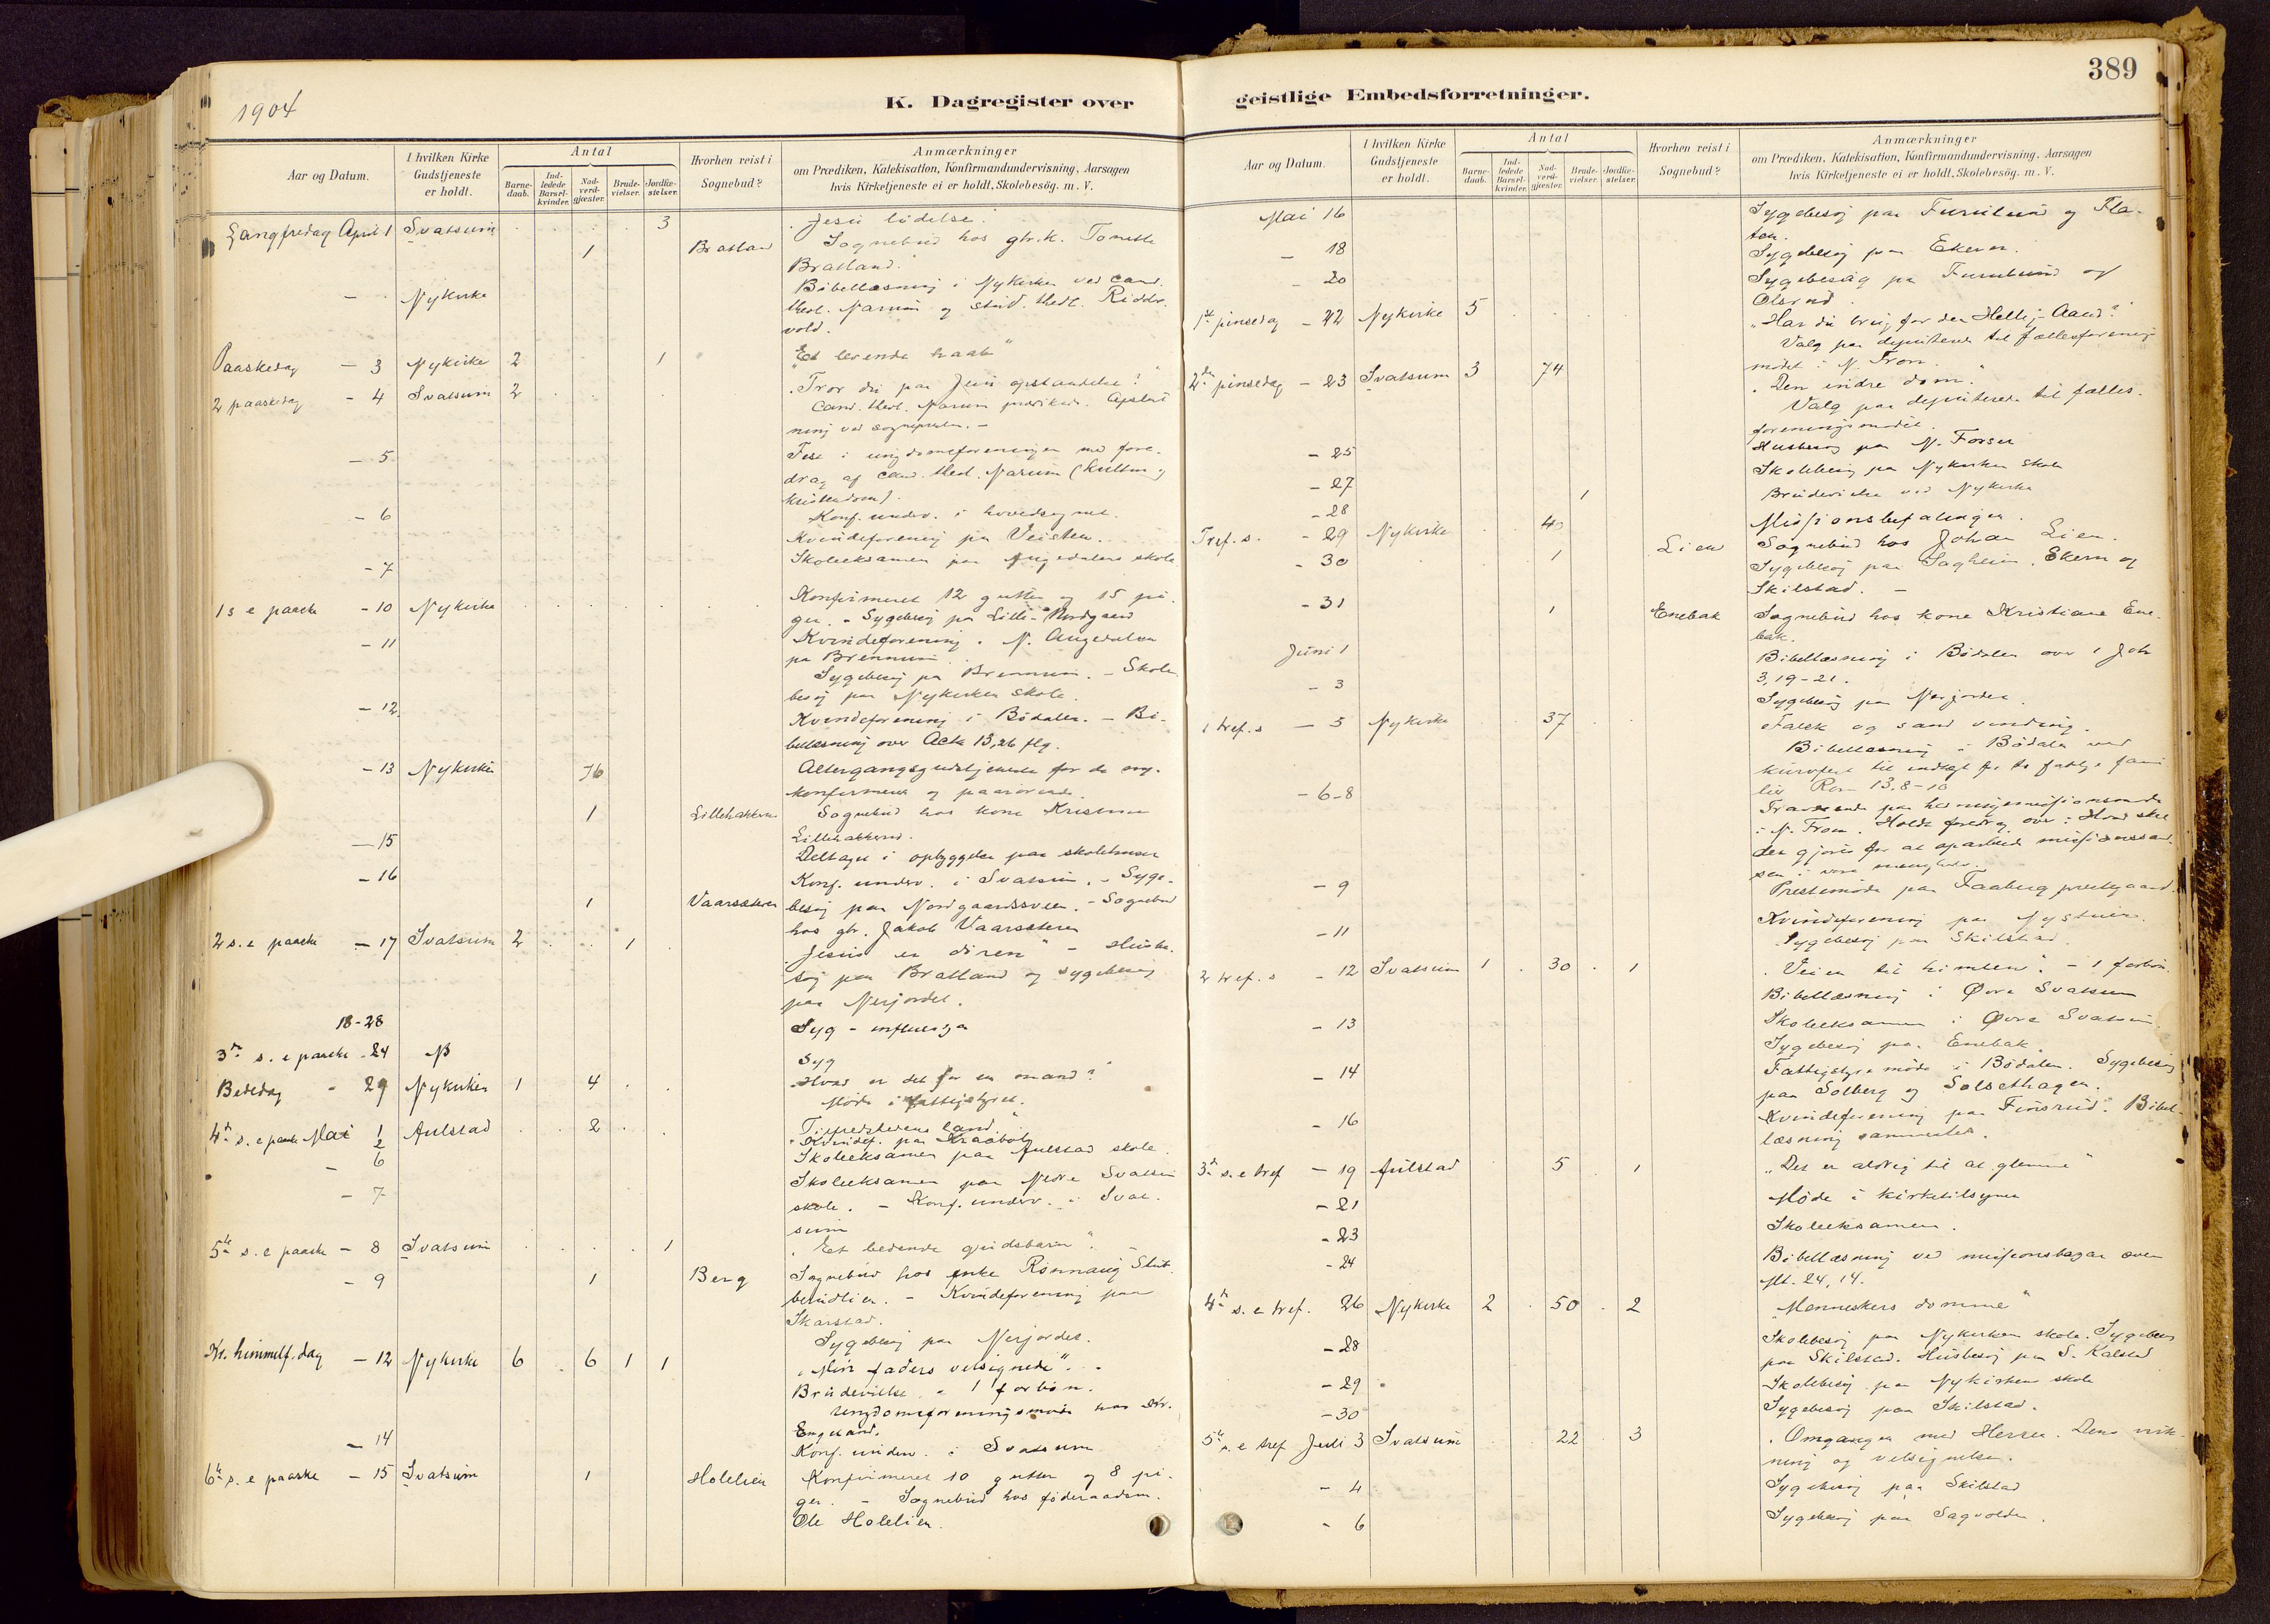 1904
K. Dagregister over
Aar og Datum.
I hvilken Kirke Gudstjeneste er holdt.
Antal
Barne-daab.
Ind-ledede Barsel-kvinder.
Nad-verd-gjæster.
Brude-vielser.
Jordfæ-stelser.
Hvorhen reist i Sognebud?
Anmærkninger
om Prædiken, Katekisation, Konfirmandundervisning, Aarsagen
hvis Kirketjeneste ei er holdt, Skolebesög. m. V.
Langfredag April 1 Svatsum 3 Jesu lidelse.
1 Bratland Sognebud hos gbr.k. Tonette
Bratland.
- Nykirke Bibellæsning i Nykirken ved Cand.
theol. Narum og stud. theol. Ridder-
vold.
Paaskedag - 3 Nykirke 2 1 "Et levende haab"
2 paaskedag - 4 Svatsum 2 "Tror du paa Jesu opstandelse?"
Cand. theol. Narum prædiker. Apslut
ning ved sognepresten. -
- 5 Fest i ungdomsforeningen med fore-
drag af cand. theol. Narum (Kultur og
kristendom).
- 6 Konf. underv. i hovedsognet.
Kvindeforening paa Veisten.
- 7 Skoleeksamen paa Augedalens skole
1 s e paaske - 10 Nykirke Konfirmeret 12 gutter og 15 pi-
ger. - Sygebesøg paa Lille-Nordgaard
- 11 Kvindeforening i N. Augedalen
paa Brennum.
Sygebesøg paa Brennum. - Skole
besøg paa Nykirken skole.
- 12 Kvindeforening i Bødalen. - Bi-
bellæsning over Acta 13,26 flg.
- 13 Nykirke 76 Altergangsgudstjeneste for de ny-
konfirmerede og paarørende.
1 Lillehakkerud Sognebud hos kone Kristine
Lillehakkerud.
- 15 Deltaget i opbyggelse paa skolehuset
- 16 Konf. underv. i Svatsum. - Syge-
1 Vaarsæteren besøg paa Nordgaardssveen. - Sognebud
hos gbr. Jakob Vaarsæteren
2 s. e paaske - 17 Svatsum 2 1 "Jesus er døren" - Husbe-
søg paa Bratland og sygebesøg
paa Nerjordet.
18-28 Syg - influenza
3die s. e paaske - 24 Syg
Bededag - 29 Nykirken 1 4 "Hvad er det for en mand?"
Møde i fattigstyret.
4de s. e paaske Mai 1 Aulstad 2 "Tilfredshedens land."
2 Kvindef. paa Kraabøl
- 6 Skoleeksamen paa Aulstad skole.
- 7 Skoleeksamen paa Nedre Svatsum
skole. - Konf. underv. i Svat-
sum
5te s. e paaske - 8 Svatsum 1 "Et bedende gudsbarn".
- 9 1 Berg Sognebud hos enke Rønnaug Stub-
berudlien. - Kvindeforening paa
Skarstad.
Sygebesøg paa Nerjordet.
Kr. himmelf. dag - 12 Nykirke 6 6 1 1 "Min faders velsignede". -
Brudevielse. - 1 forbøn.
Ungdomsforeningsmøde hos Kr.
Engeland.
- 14 Konf. underv. i Svatsum
6te s. e paaske - 15 Svatsum 1 Holelien Konfirmeret 10 gutter og 8 pi-
ger. - Sognebud hos føderaadsm.
Ole Holelien.
389
geistlige Embedsforretninger.
Aar og Datum.
I hvilken Kirke Gudstjeneste er holdt.
Antal
Barne-daab.
Ind-ledede Barsel-kvinder.
Nad-verd-gjæster.
Brude-vielser.
Jordfæ-stelser.
Hvorhen reist i Sognebud?
Anmærkninger
om Prædiken, Katekisation, Konfirmandundervisning, Aarsagen
hvis Kirketjeneste ei er holdt, Skolebesög. m. V.
Mai 16 Sygebesøg paa Furulund og Fla-
ten.
- 18 Sygebesøg paa Ekern.
- 20 Sygebesøg paa Furulund og
Olsrud.
1ste pinsedag - 22 Nykirke 5 "Har du brug for den Hellig-Aand?"
Valg paa deputerede til fællesforenings
mødet i N. Fron.
2den pinsedag - 23 Svatsum 3 74 "Den indre dom."
Valg paa deputerede til fælles-
foreningsmødet.
- 25 Husbesøg paa N. Forset
- 27 Skolebesøg paa Nykirken skole
- 28 1 Brudevielse ved Nykirke
Tref. s. - 29 Nykirke 40 Missionsbefalingen.
- 30 1 Lien Sognebud hos Johan Lien.
Sygebesøg paa Sagheim, Ekern og
Skilstad. -
- 31 1 Enebak Sognebud hos kone Kristiane Ene-
bak.
Juni 1 Bibellæsning i Bødalen over 1 Joh
3,19-21.
- 3 Sygebesøg paa Nerjordet
1 tref. s - 5 Nykirke 37 Falsk og sand vending.
Bibellæsning i Bødalen ved
kurvfest til indtægt for to fattige fami
lier Rom 13,8-10
- 6-8 Fraværende paa hedningemissionsmøde
i N. Fron. Holdt foredrag over: Hvad skal
der gjøres for at oparbeide missionssand-
sen i vore menigheder.
- 9 Prestemøde paa Faaberg prestegaard.
Kvindeforening paa Nystuen.
- 11 Sygebesøg paa Skilstad.
2 tref. s - 12 Svatsum 1 30 1 "Veien til himlen". - 1 forbøn.
Bibellæsning i Øvre Svatsum
- 13 Skoleeksamen i Øvre Svatsum.
Sygebesøg paa Enebak.
- 14 Fattigstyremøde i Bødalen. Sygebesøg
paa Solberg og Solsethagen.
- 16 Kvindeforening paa Finsrud. Bibel-
læsning sammesteds.
3die s. e tref - 19 Aulstad 5 1 "Det er aldrig til at glemme"
- 21 Møde i kirketilsynet
- 23 Skoleeksamen.
- 24 Bibellæsning ved missionsbazar over
Mt. 24,14.
4de s. e tref. 26 Nykirke 2 50 2 "Menneskers domme"
- 28 Skolebesøg paa Nykirken skole. Sygebesøg
paa Skilstad. Husbesøg paa S. Kalstad
- 29 Skolebesøg paa Nykirken skole
- 30 Sygebesøg paa Skilstad.
5te s. e tref Juli 3 Svatsum 22 3 "Omgangen med Herren. Dens virk-
ning og velsignelse.
- 4 Sygebesøg paa Skilstad
- 6 Sygebesøg paa Sagvolden.